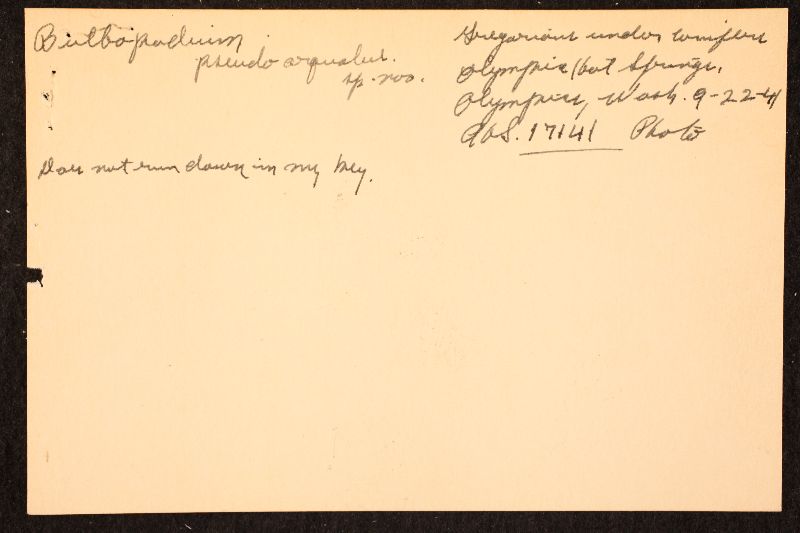 Bulbopodium
pseudo aequalis.
sp. nov.
Gregarious under conifers
Olympic Hot Springs,
Olympics, Wash. 9-22-41
AHS. 17141 Photo
Does not run down in my key.